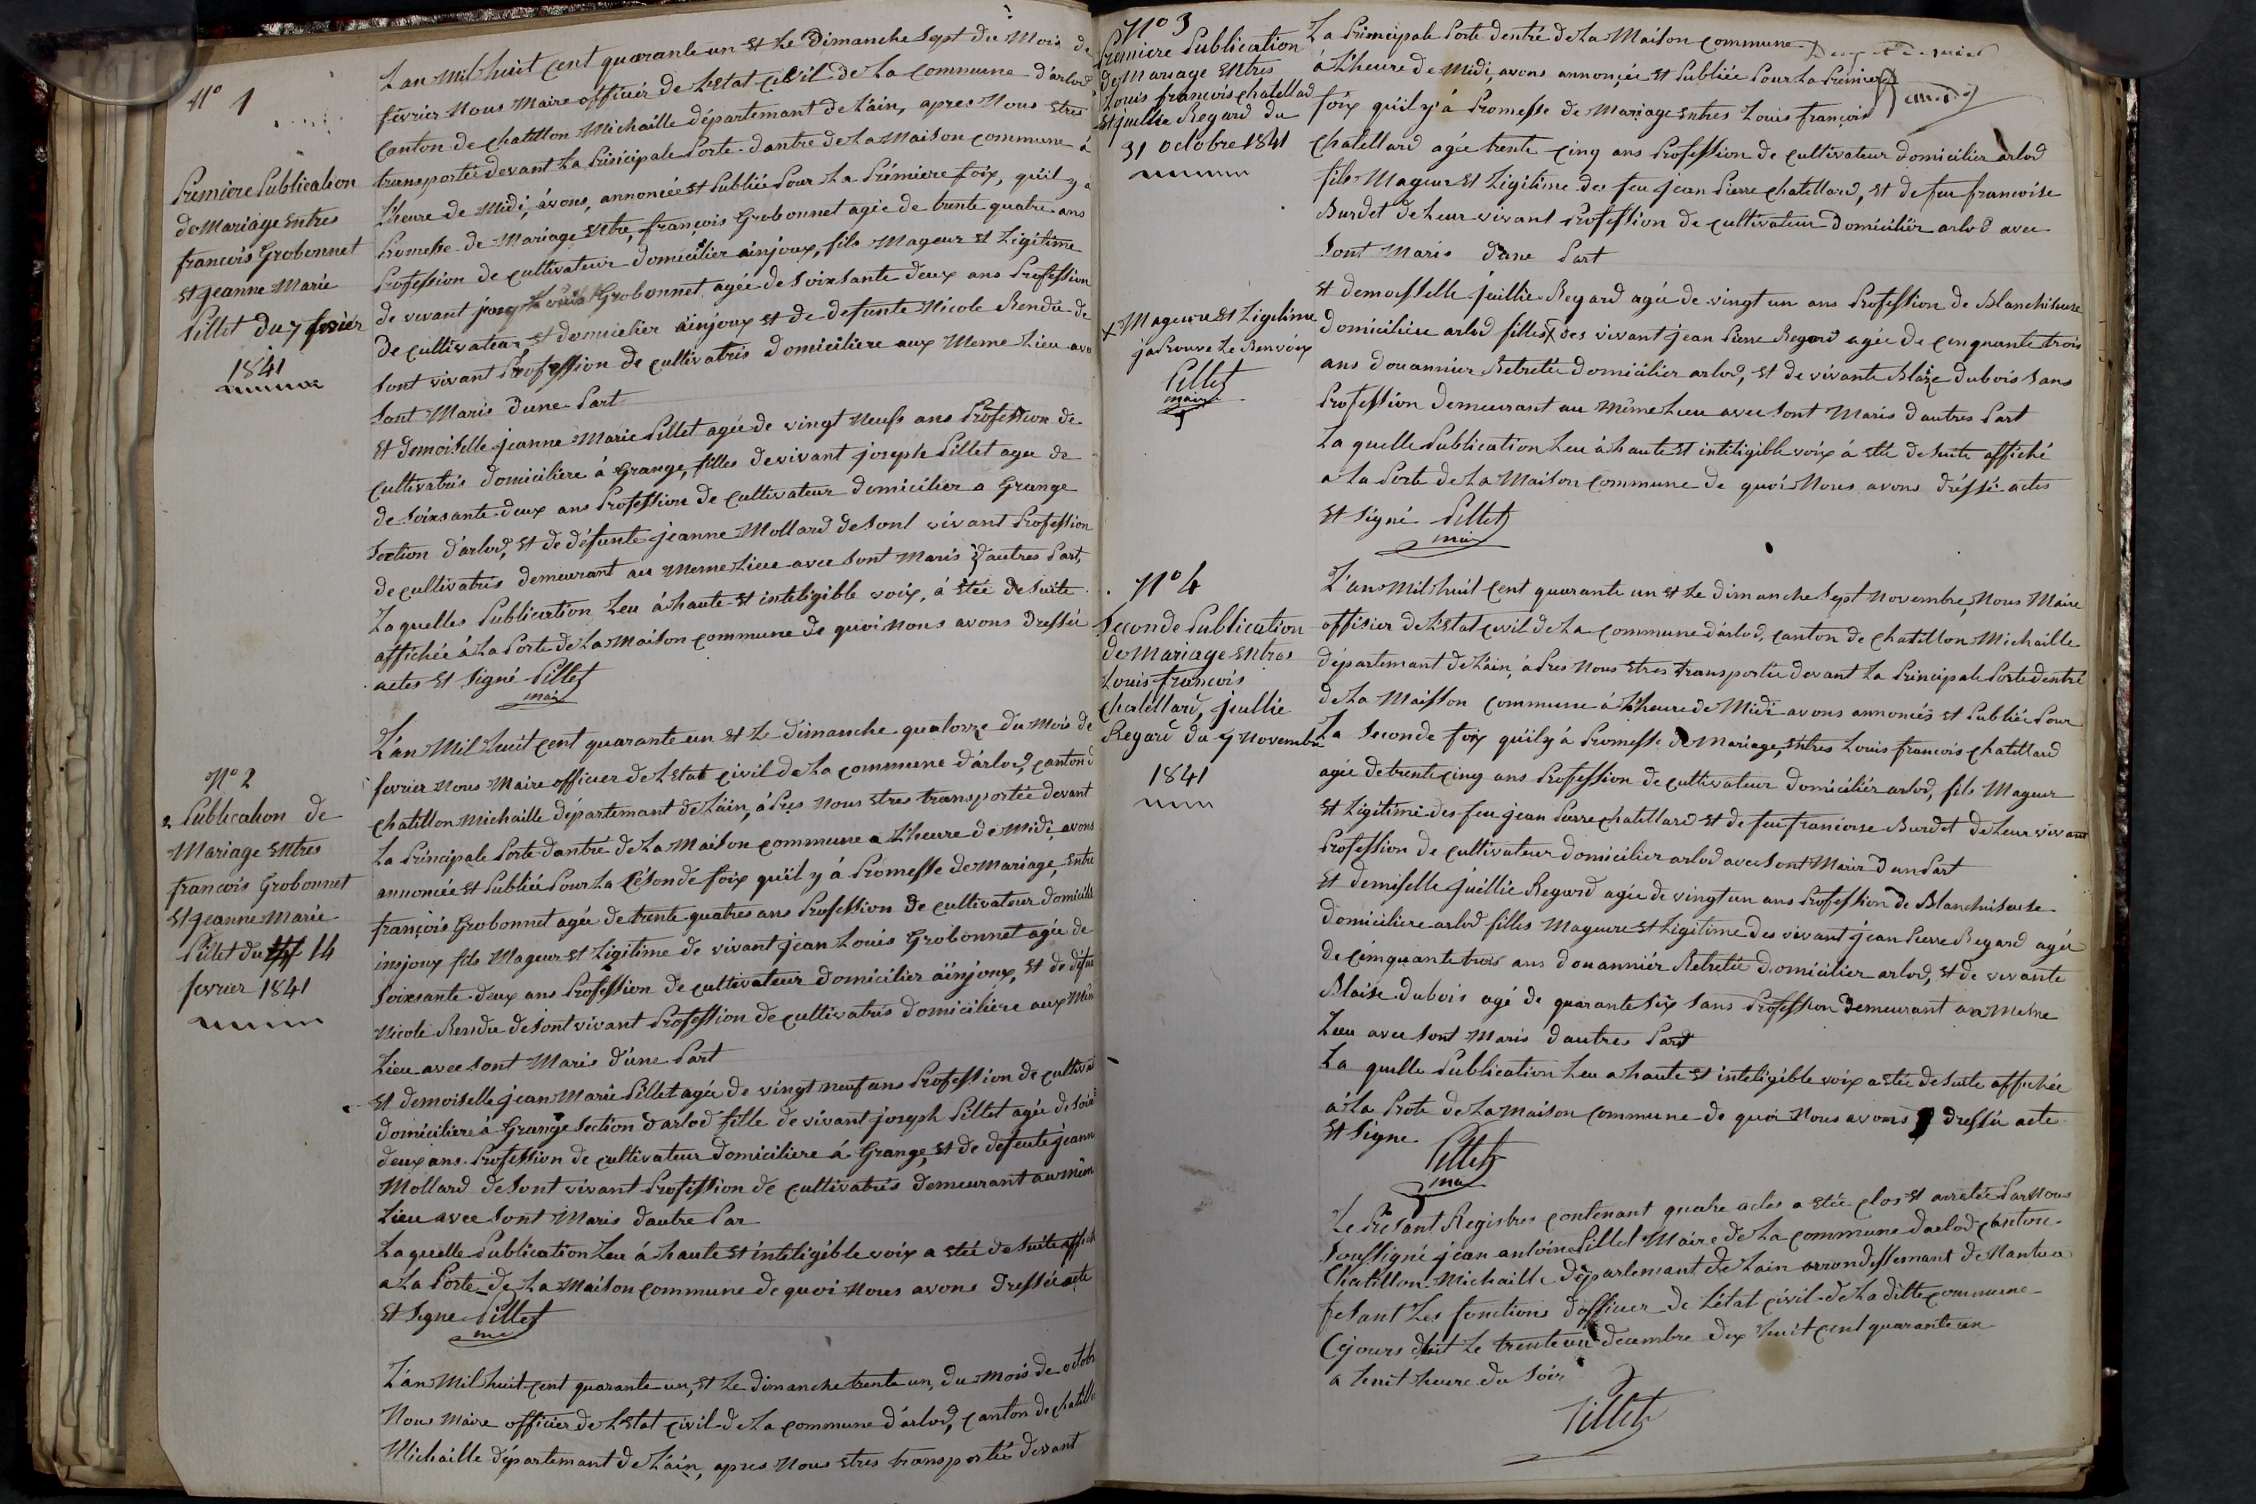 N° 1
Premiere Publication
de Mariage Entres
francois Grobonnet
Et jeanne Marie
Pillet du 7 fevrier
1841
L'an Mil huit cent quarante un Et Le Dimanche Sept du Mois de
fevrier Nous Maire officier de L'Etat Civil de La Commune d'arlod
Canton de Chatillon Michaille départemant de L'ain, apres Nous Etres
transportée devant La Principale Porte dantre de La Maison commune à
L'heure de Midi, avons, annoncée Et Publiée Pour La Premiere foix, qu'il y a
Promesse de Mariage Entre, françois Grobonnet agée de trente quatre ans
Profession de cultivateur domicilier ainjoux, fils Mageur Et Ligitime
de vivant jean Louis Grobonnet agée de Soixsante deux ans Profession
De cultivateur Et domicilier ainjoux Et de defunte Nicole Rendu de
Sont vivant Profession de cultivatris domiciliere aux Meme Lieu avec
Sont Maris d'une Part
Et demoiselle jeanne Marie Pillet agée de vingt Neuf ans Profession de
cultivatris domiciliere à Grange, filles de vivant joseph Pillet agée de
de Soixsante deux ans Profession de cultivateur domicilier a Grange
Section d'arlod, Et de défunte jeanne Mollard de Sont vivant Profession
de cultivatris demeurant au Meme Lieu avec Sont Maris d'autres Part,
Laquelles Publication Leu à haute Et inteligible voix, à Etée de Suite
affichée à La Porte de La Maison commune de quoi Nous avons dressée
actes Et Signé Pillet
maire
N° 2
2 Publication de
Mariage Entres
francois Grobonnet
Et jeanne Marie
Pillet du 14
fevrier 1841
L'an Mil huit cent quarante un Et Le dimanche quatorze du Mois de
fevrier Nous Maire officier de L'Etat civil de La commune d'arlod, canton d
Chatillon Michaille départemant de L'ain, à Pres Nous Etres transportée devant
La Principale Porte dantre de La Maison commune a L'heure de Midi, avons
annoncée Et Publiée Pour La Seconde foix qu'il y à Promesse de Mariage, Entre
françois Grobonnet agée de trente quatres ans Profession De cultivateur domicilie
injoux fils Mageur Et Ligitime de vivant jean Louis Grobonnet agée de
Soixsante deux ans Profession de cultivateur domicilier ainjoux, Et de défun
Nicole Rendu de Sont vivant Profession de cultivatris domiciliere aux Mem
Lieu avec Sont Maris d'une Part
Et demoiselle jean Marie Pillet agée de vingt neuf ans Profession de cultivat
domiciliere à Grange Section d'arlod fille de vivant joseph Pillet agée de Soix
deux ans Profession de cultivateur domiciliere à Grange, Et de defeute jeann
Mollard de Sont vivant Profession de cultivatris demeurant au mêm
Lieu avec Sont Maris d'autre Par
Laquelle Publication Leu à haute Et inteligible voix a Etée de Suite affich
a La Porte de La Maison commune de quoi Nous avons dressée acte
Et Signe Pillet
L'an Mil huit cent quarante un, Et Le dimanche trente un, du Mois de octobr
Nous Maire officier de L'Etat civil de La commune d'arlod, canton de chatill
Michaille départemant de L'ain, apres Nous Etres transportée devant
N° 3
Premiere Publication
de Mariage Entres
Louis francois Chatellard
Et juillie Regard du
31 octobre 1841
La Principale Porte d'entré de La Maison commune
à L'heure de Midi, avons annonçée Et Publiée Pour La Premiere
foix qu'il y à Promesse de Mariage Entres Louis françois
Chatellard agée trente Cinq ans Profession de cultivateur domicilier arlod
fils Mageur Et Ligitime des feu jean Pierre chatellard, Et de feu francoise
Burdet de Leur vivant Profession de cultivateur domicilier arlod avec
Sont Maris dune Part
Et demosselle juillie Regard agée de vingt un ans Profession de Blanchiseuse
X Mageure Et Ligitime
japrouve Le Renvoix
Pillet
maire
domiciliere arlod filles X des vivant jean Pierre Regard agée de cinquante trois
ans douannier Retretée domicilier arlod, Et de vivante Blaize dubois Sans
Profession demeurant au même Lieu avec Sont Maris d'autres Part
La quelle Publication Leu à haute Et inteligible voix à Etée de Suite affiché
a La Porte de La Maison commune de quoi Nous avons dréssé actes
Et Signé Pillet
N° 4
Seconde Publication
de Mariage Entres
Louis francois
Chatellard, juillie
Regard du 7 Novembre
1841
L'an Mil huit cent quarante un Et Le dimanche Sept Novembre, Nous Maire
offisier de L'Etat civil de La commune d'arlod, canton de chatillon Michaille
départemant de L'ain, à Pres Nous Etres transportée devant La Principale Porte dentré
de La Maisson commune à L'heure de Midi avons annoncés Et Publiée Pour
La Seconde foix qu'il y à Promesse de Mariage, Entres Louis francois chatellard
agée de trente cinq ans Profession de cultivateur domicilier arlod, fils Mageur
Et Ligitime des feu jean Pierre chatellard Et de feu francoise Burdet de Leur vivant
Profession de cultivateur domicilier arlod avec Sont Maris d'un Part
Et demiselle juillie Regard agée de vingt un ans Profession de Blanchiseuse
domiciliere arlod filles Mageure Et Ligitime des vivant jean Pierre Regard agée
de Cinquante trois ans douannier Retretée domicilier arlod, Et de vivante
Blaise dubois agé de quarante Six Sans Profession demeurant au Meme
Lieu avec Sont Maris d'autres Part
La quelle Publication Leu a haute Et inteligible voix a Etée de Suite affichée
à La Prote de La Maison commune de quoi Nous avons dressée acte
Et Signe Pillet
Le Presant Registres contenant quatre actes a Etée clos Et arretée Par Nous
Soussigné jean antoine Pillet Maire de La commune darlod canton
Chatillon Michaille départemant de Lain arrondissemant de Nantua
fesant Les fonctions d'officier de L'état civil de La ditte commune
Cejours dhuit Le trente un decembre dix huit cent quarante un
a huit heure du Soir
Pillet